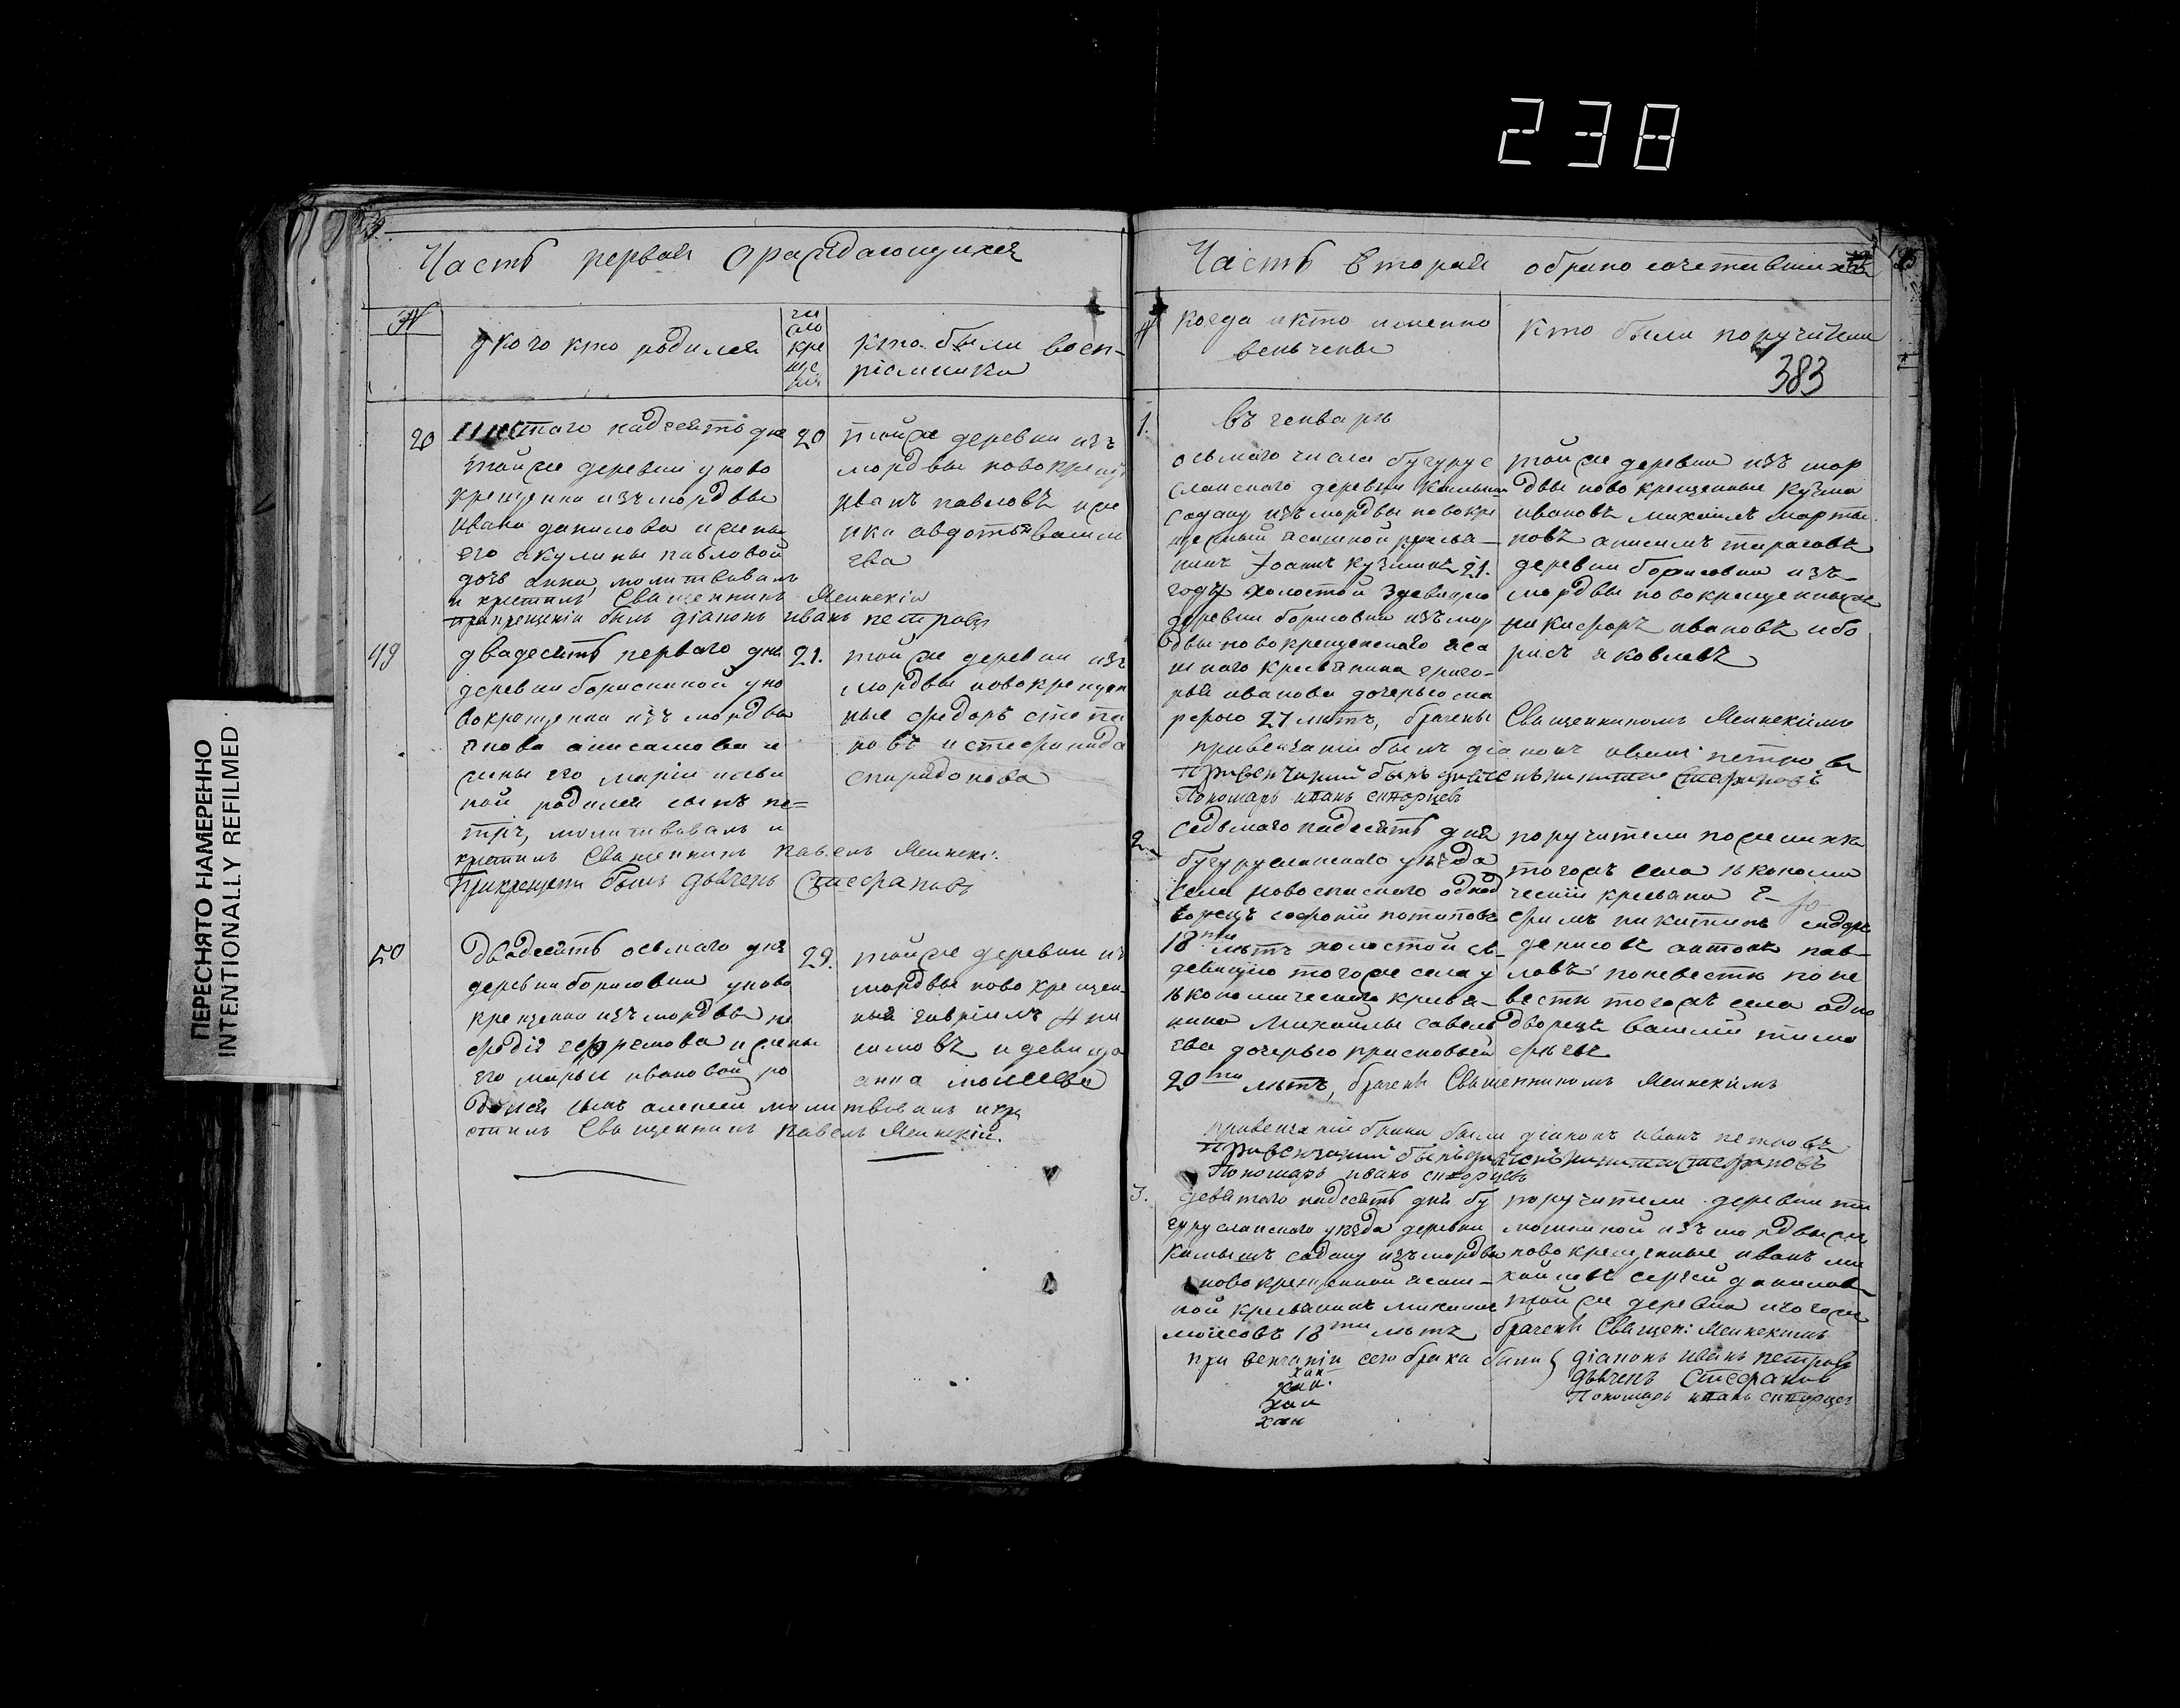 238
ПЕРЕСНЯТО НАМЕРЕННО
INTENTIONALLY REFILMED
Часть первая О раждающихся
№
у кого кто родился
чи
сло
кре
ще
нія
кто были восп-
ріемники
20
Шестаго надесять дня
тойже деревни у ново
крещенна изъ мордвы
ивана данилова и жены
его акулины павловой
дочь анна молитвовалъ
и крестилъ Священникъ
при крещеніи былъ діаконъ иванъ петровъ
20
тойже деревни изъ
мордвы новокрещен
иванъ павловъ и же
нка авдотья васил
ева
49
двадесять перваго дня
деревни борискиной у но
вокрещенна изъ мордвы
анисимова и
жены его маріи
ной родился сынъ пе=
тръ, молитвовалъ и
крестилъ Священникъ павелъ
При крещеніи былъ дьячекъ Стефановъ
21.
тойже деревни изъ
мордвы новокрещен
ные федоръ степа
новъ и стефанида
спиридонова
50
двадесять осьмаго дня
деревни борисовки у ново
крещенна изъ мордвы не
федія ефремова и жены
его марьи ивановой ро
дился сынъ алексей молитвовалъ и кре
стилъ Священникъ павелъ
29.
тойже деревни из
мордвы ново крещен-
ный гавріилъ ани
симовъ и девица
анна моисеева
Часть вторая о брако сочетавшихся
№
когда и кто именно
венчены
кто были поручители
383
1.
въ генваре
осьмаго числа бугурус
ланскаго деревни камыш
садаку изъ мордвы новокре
щеный ясашной крестья-
нинъ Іоаннъ кузминъ 21.
годъ холостой з девицею
деревни борисовки изъ мор
двы новокрещенскаго яса
шнаго крестьянина григо-
рья иванова дочерью ма
рфою 27 летъ, брачены Священникомъ
при венчаніи былъ діаконъ иванъ петровъ
При венчаніи былъ дьячекъ никита Стефановъ
Пономарь иванъ скворцевъ
тойже деревни изъ мор
двы ново крещенные кузма
ивановъ михаилъ марты
новъ анисимъ тарасовъ
деревни борисовки изъ
мордвы новокрещенныеже
никифоръ ивановъ и бо
рисъ яковлевъ
2.
Седьмаго надесять дня
бугурусланскаго уезда
села новоспаскаго однод
ворецъ софроній потаповъ
18ти летъ холостой съ
девицею тогоже села у
экономическаго крестья-
нина Михайлы савель
ева дочерью прасковьей
20ти летъ, брачены Священникомъ
при венчаніи брака были діаконъ иванъ петровъ
При венчаніи былъ дьячекъ никита Стефановъ
Пономарь иванъ скворцевъ
поручители по жениха
тогожъ села экономи
ческіи крестьяна е-
фимъ никитинъ сидоръ
денисовъ антонъ пав-
ловъ по невесте
тогожъ села одно
дворецъ василій тимо
феевъ
3.
девятаго надесять дня бу
гурусланскаго уезда деревни
камышъ садаку изъ мордвы
новокрещенной ясаш-
ной крестьянинъ
моисеовъ 18ти летъ
поручители деревни ти
мошкиной изъ мордвы же
новокрещенные иванъ ми
хайловъ сергей даниловъ
тойже деревни
брачены Священ:
при венчаніи сего брака были
діаконъ иванъ петровъ
дьячекъ Стефановъ
Пономарь иванъ скворцев